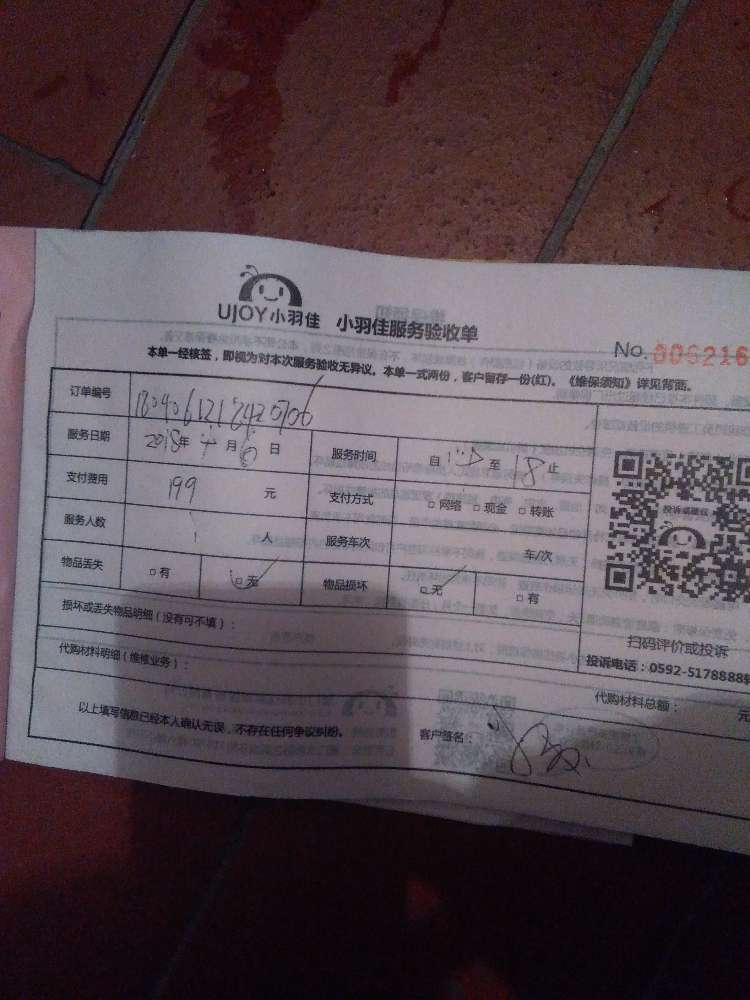 UJOY小羽佳 小羽佳服务验收单
No. 006216
本单一经核签，即视为对本次服务验收无异议。本单一式两份，客户留存一份(红)。《维保须知》详见背面。
订单编号
服务日期 2018年4月 日 服务时间 自 至 18止
支付费用 199 元 支付方式 □网络 □现金 □转账
服务人数 1 人 服务车次 车/次
物品丢失 □有 □无 物品损坏 □无 □有
投诉或建议
损坏或丢失物品明细(没有可不填)：
扫码评价或投诉
代购材料明细(维修业务)：
投诉电话：0592-5178888转
代购材料总额： 元
以上填写信息已经本人确认无误，不存在任何争议纠纷。 客户签名：